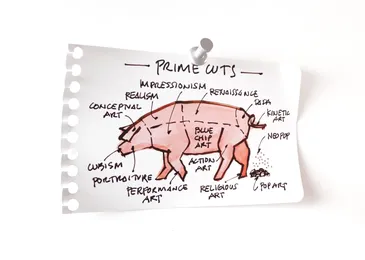 PRIME CUTS
IMPRESSIONISM
RENAISSANCE
REALISM
DADA
CONCEPTUAL
ART
KINETIC
ART
BLUE
CHIP
ART
NEOPOP
CUBISM
ACTION
ART
PORTRAITURE
PERFORMANCE
ART
RELIGIOUS
ART
POP ART